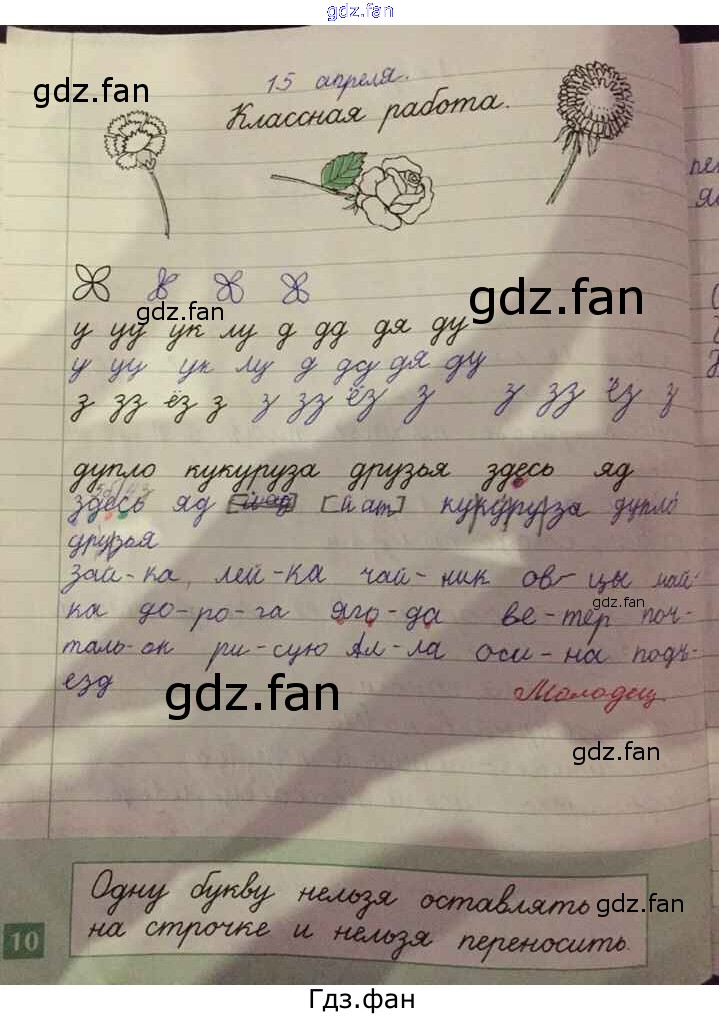 gdz.fan
gdz.fan
15 апреля.
Классная работа.
gdz.fan
gdz.fan
у уу ук лу д дд дя ду
у уу ук лу д дд дя ду
з зз ёз з з зз ёз з з зз ёз з
дупло кукуруза друзья здесь яд
здесь яд [йат] кукуруза дупло
друзья
зай-ка, лей-ка чай-ник ов-цы май-
gdz.fan
ка до-ро-га яго-да ве-тер поч-
таль-он ри-сую Ал-ла оси-на подъ-
езд Молодец
gdz.fan
gdz.fan
Одну букву нельзя оставлять
gdz.fan
на строчке и нельзя переносить.
10
Гдз.фан